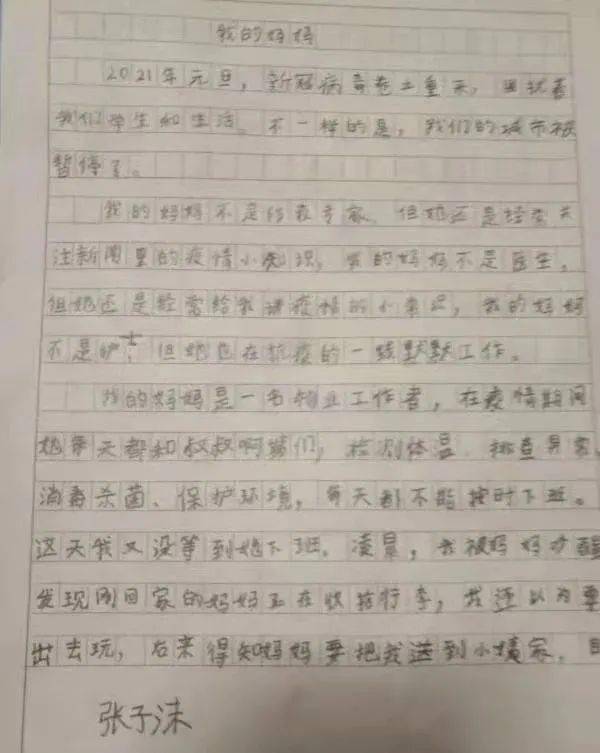 我的妈妈
2021年元旦，新冠病毒卷土重来，困扰着
我们学生和生活。不一样的是，我们的城市被
暂停了。
我的妈妈不是防疫专家，但她还是经常关
注新闻里的疫情小知识，我的妈妈不是医生，
但她还是经常给我讲疫情的小常识，我的妈妈
不是护士，但她也在抗疫的一线默默工作。
我的妈妈是一名物业工作者，在疫情期间
她每天都和叔叔啊姨们，检测体温、排查异常、
消毒杀菌、保护环境，每天都不能按时下班。
这天我又没等到她下班。凌晨，我被妈妈吵醒
发现刚回家的妈妈正在收拾行李，我还以为要
出去玩，后来得知妈妈要把我送到小姨家，
张子沫